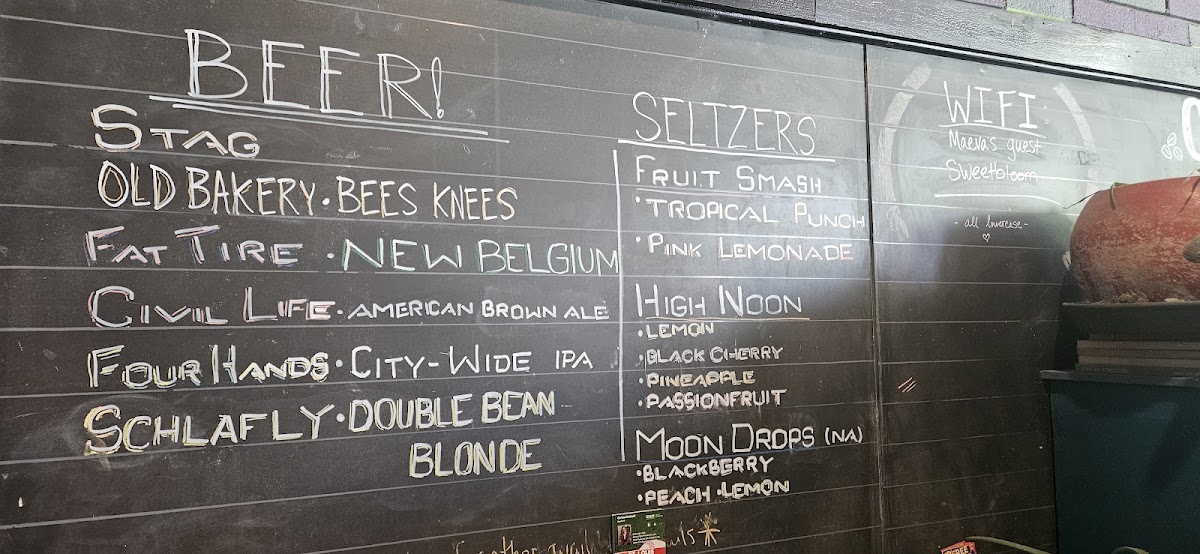 BEER!
STAG
OLD BAKERY · BEES KNEES
FAT TIRE · NEW BELGIUM
CIVIL LIFE · AMERICAN BROWN ALE
FOUR HANDS · CITY-WIDE IPA
SCHLAFLY · DOUBLE BEAN
BLONDE
SELTZERS
FRUIT SMASH
· TROPICAL PUNCH
· PINK LEMONADE
HIGH NOON
· LEMON
· BLACK CHERRY
· PINEAPPLE
· PASSIONFRUIT
MOON DROPS (NA)
· BLACKBERRY
· PEACH · LEMON
WIFI:
Maeva's guest
Sweetbloom
- all lowercase -